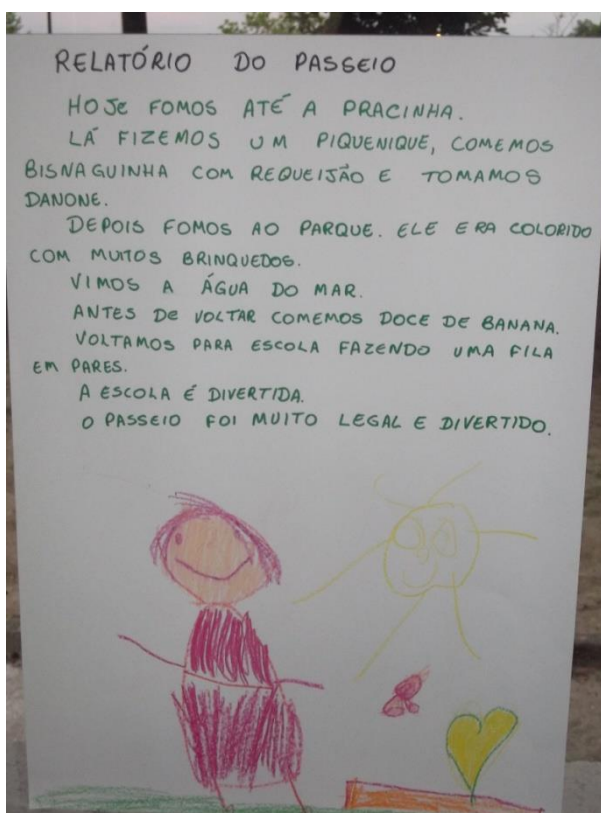 RELATÓRIO DO PASSEIO
HOJE FOMOS ATÉ A PRACINHA.
LÁ FIZEMOS UM PIQUENIQUE, COMEMOS
BISNAGUINHA COM REQUEIJÃO E TOMAMOS
DANONE.
DEPOIS FOMOS AO PARQUE. ELE ERA COLORIDO
COM MUITOS BRINQUEDOS.
VIMOS A ÁGUA DO MAR.
ANTES DE VOLTAR COMEMOS DOCE DE BANANA.
VOLTAMOS PARA ESCOLA FAZENDO UMA FILA
EM PARES.
A ESCOLA É DIVERTIDA.
O PASSEIO FOI MUITO LEGAL E DIVERTIDO.